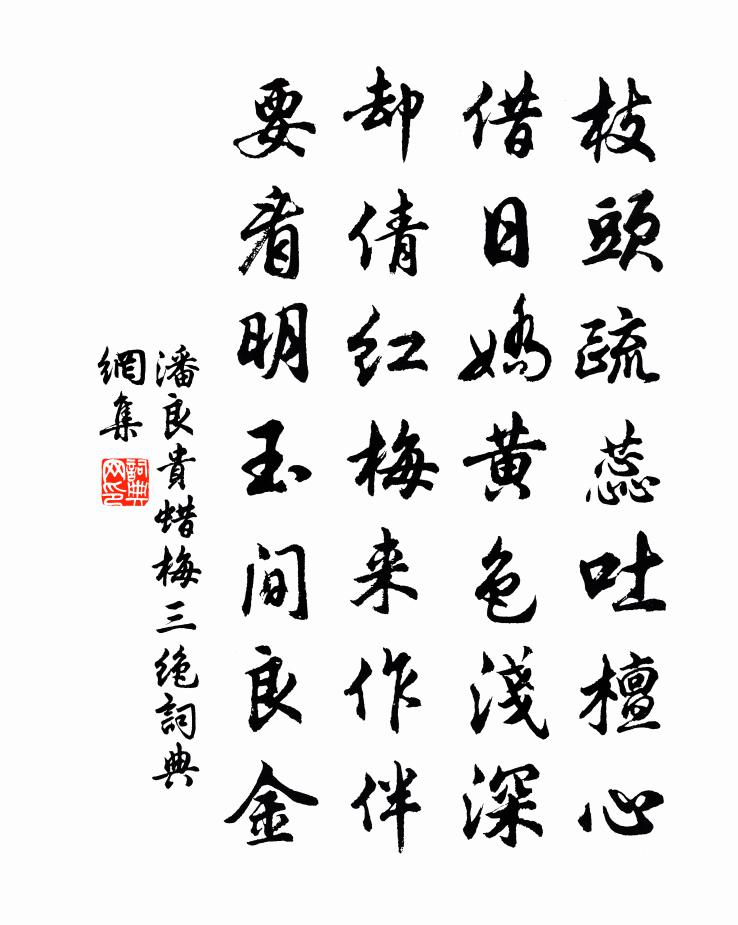 枝頭疏蕊吐檀心
借日嬌黃色淺深
却倩紅梅来作伴
要看明玉間良金
潘良貴蜡梅三絶詞典
網集
詞典網印